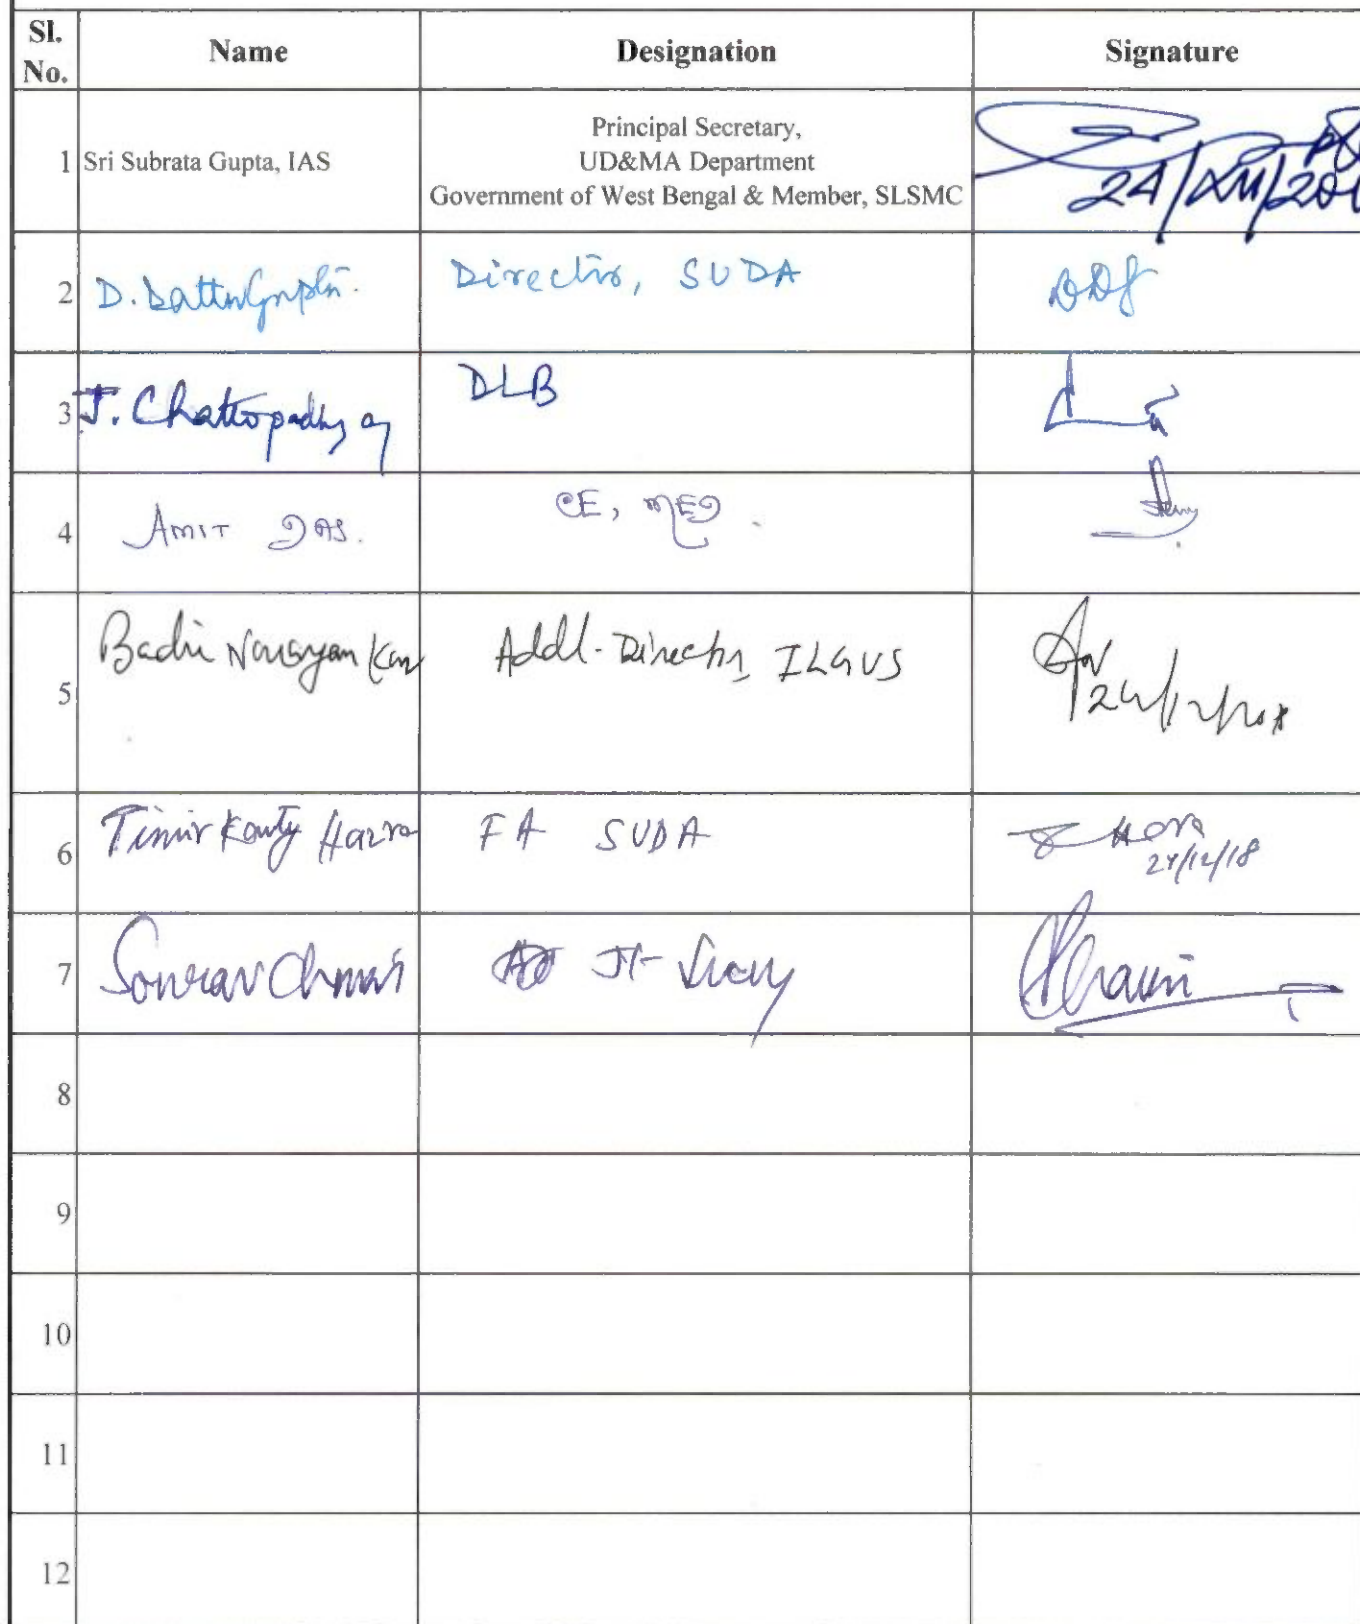 Sl. No. Name Designation Signature
1 Sri Subrata Gupta, IAS Principal Secretary,
UD&MA Department
Government of West Bengal & Member, SLSMC
24/XII/201
2 D. DattaGupta. Director, SUDA DDG
3 J. Chattopadhyay DLB
4 AMIT DAS. CE, MED.
5 Badri Narayan Kar Addl-Director, ILGUS
24/12/2018
6 Timir Kanty Hazra FA SUDA
24/12/18
7 Sourav Jt- Secy
8
9
10
11
12